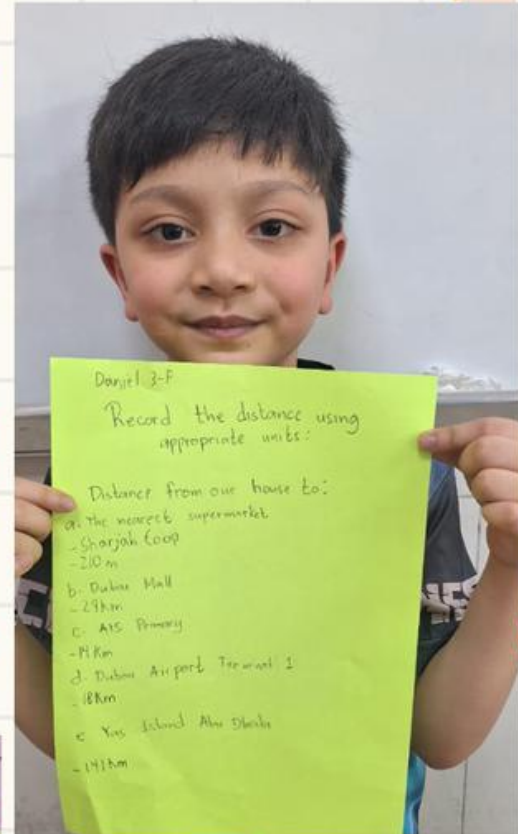 Daniel 3-F
Record the distance using
appropriate units:
Distance from our house to:
a. The nearest supermarket
- Sharjah Coop
- 210 m
b. Dubai Mall
- 29 Km
c. Primary
- 14 Km
d. Dubai Airport Terminal 1
- 18 Km
e Yas Island Abu Dhabi
- 141 km